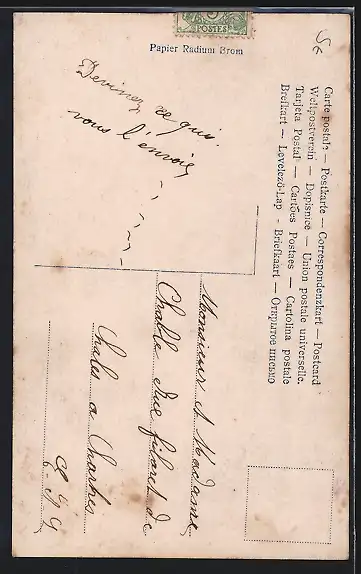 5
POSTES
Papier Radium Brom
5f
Carte postale — Postkarte — Correspondenzkart — Postcard
Weltpostverein — Dopisnice — Union postale universelle.
Tarjeta Postal — Cartões Postaes — Cartolina postale
Brefkart — Levelezö-Lap - Briefkaart — Открытое письмо
Devinez ce qui
vous l'envoie
Monsieur et Madame
Challe rue filaret de
Chales a Chartres